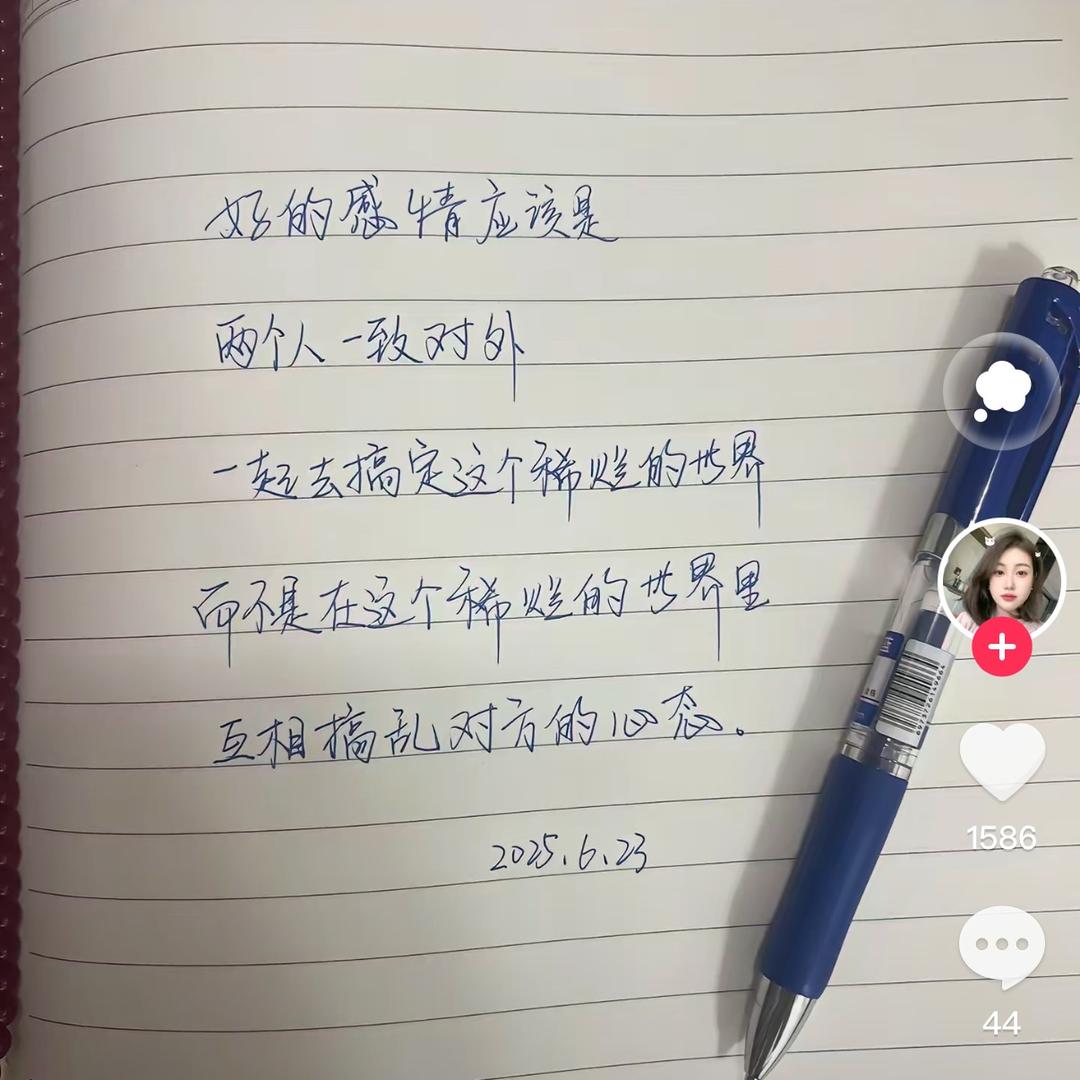 好的感情应该是
两个人一致对外
一起去搞定这个稀烂的世界
而不是在这个稀烂的世界里
互相搞乱对方的心态。
2025.6.23
1586
44